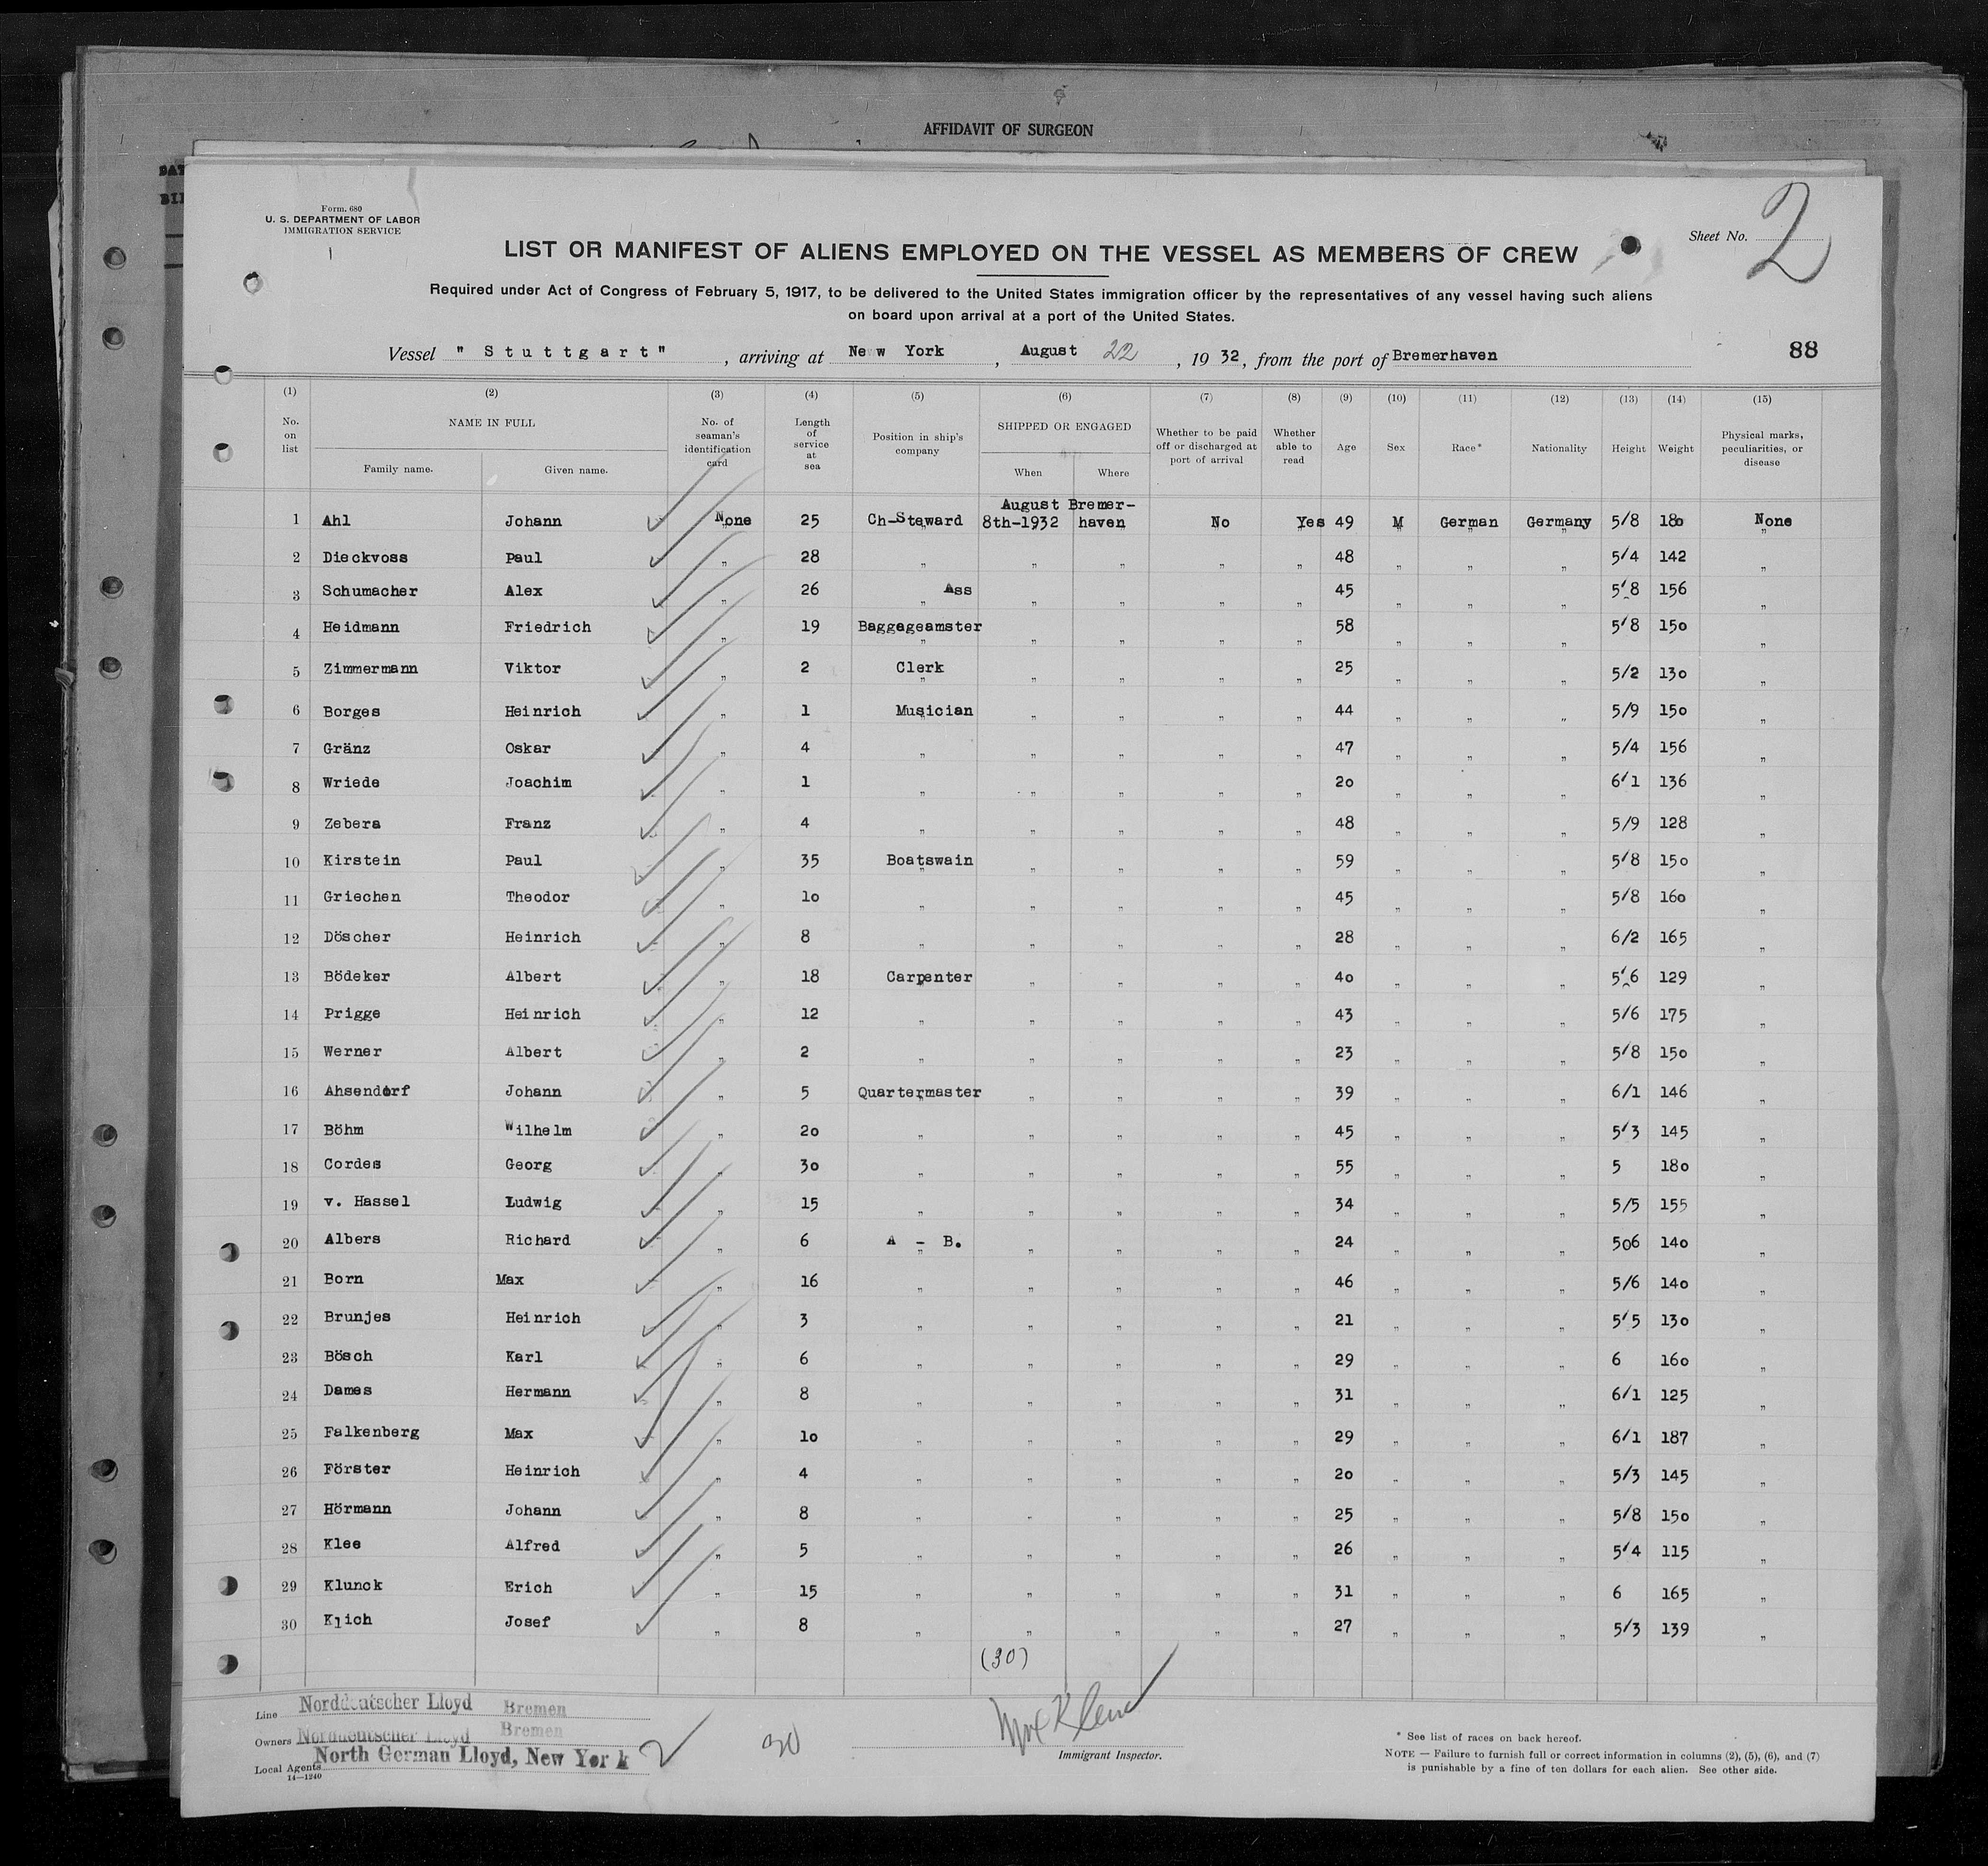 AFFIDAVIT OF SURGEON
Form. 680
U. S. DEPARTMENT OF LABOR
IMMIGRATION SERVICE
Sheet No. 2
LIST OR MANIFEST OF ALIENS EMPLOYED ON THE VESSEL AS MEMBERS OF CREW
Required under Act of Congress of February 5, 1917, to be delivered to the United States immigration officer by the representatives of any vessel having such aliens
on board upon arrival at a port of the United States.
Vessel " Stuttgart " , arriving at New York , August 22 , 19 32, from the port of Bremerhaven
88
(1) (2) (3) (4) (5) (6) (7) (8) (9) (10) (11) (12) (13) (14) (15)
No. on list NAME IN FULL Family name. Given name. No. of seaman's identification card Length of service at sea Position in ship's company SHIPPED OR ENGAGED When Where Whether to be paid off or discharged at port of arrival Whether able to read Age Sex Race* Nationality Height Weight Physical marks, peculiarities, or disease
1 Ahl Johann None 25 Ch-Steward August 8th-1932 Bremer-haven No Yes 49 M German Germany 5/8 180 None
2 Dieckvoss Paul " 28 " " " " " 48 " " " 5/4 142 "
3 Schumacher Alex " 26 " Ass " " " " 45 " " " 5/8 156 "
4 Heidmann Friedrich " 19 Baggageamster " " " " 58 " " " 5/8 150 "
5 Zimmermann Viktor " 2 Clerk " " " " 25 " " " 5/2 130 "
6 Borges Heinrich " 1 Musician " " " " 44 " " " 5/9 150 "
7 Gränz Oskar " 4 " " " " " 47 " " " 5/4 156 "
8 Wriede Joachim " 1 " " " " " 20 " " " 6/1 136 "
9 Zebera Franz " 4 " " " " " 48 " " " 5/9 128 "
10 Kirstein Paul " 35 Boatswain " " " " 59 " " " 5/8 150 "
11 Griechen Theodor " 10 " " " " " 45 " " " 5/8 160 "
12 Döscher Heinrich " 8 " " " " " 28 " " " 6/2 165 "
13 Bödeker Albert " 18 Carpenter " " " " 40 " " " 5/6 129 "
14 Prigge Heinrich " 12 " " " " " 43 " " " 5/6 175 "
15 Werner Albert " 2 " " " " " 23 " " " 5/8 150 "
16 Ahsendorf Johann " 5 Quartermaster " " " " 39 " " " 6/1 146 "
17 Böhm Wilhelm " 20 " " " " " 45 " " " 5/3 145 "
18 Cordes Georg " 30 " " " " " 55 " " " 5 180 "
19 v. Hassel Ludwig " 15 " " " " " 34 " " " 5/5 155 "
20 Albers Richard " 6 A - B. " " " " 24 " " " 506 140 "
21 Born Max " 16 " " " " " 46 " " " 5/6 140 "
22 Brunjes Heinrich " 3 " " " " " 21 " " " 5/5 130 "
23 Bösch Karl " 6 " " " " " 29 " " " 6 160 "
24 Dames Hermann " 8 " " " " " 31 " " " 6/1 125 "
25 Falkenberg Max " 10 " " " " " 29 " " " 6/1 187 "
26 Förster Heinrich " 4 " " " " " 20 " " " 5/3 145 "
27 Hörmann Johann " 8 " " " " " 25 " " " 5/8 150 "
28 Klee Alfred " 5 " " " " " 26 " " " 5/4 115 "
29 Klunck Erich " 15 " " " " " 31 " " " 6 165 "
30 Klich Josef " 8 " " " " " 27 " " " 5/3 139 "
(30)
Line Norddeutscher Lloyd Bremen
Owners Norddeutscher Lloyd Bremen
Local Agents North German Lloyd, New York 2
14—1240
30
Immigrant Inspector.
* See list of races on back hereof.
NOTE — Failure to furnish full or correct information in columns (2), (5), (6), and (7)
is punishable by a fine of ten dollars for each alien. See other side.